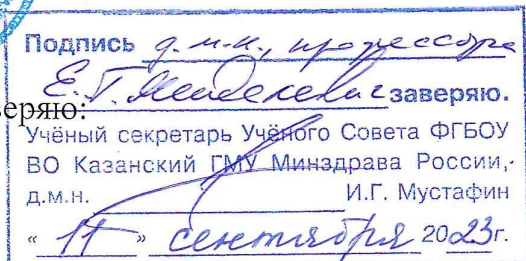 Подпись д.м.н., профессора
Е.Г. Менделевич заверяю.
веряю:
Учёный секретарь Учёного Совета ФГБОУ
ВО Казанский ГМУ Минздрава России,
д.м.н. И.Г. Мустафин
« 11 » сентября 2023г.